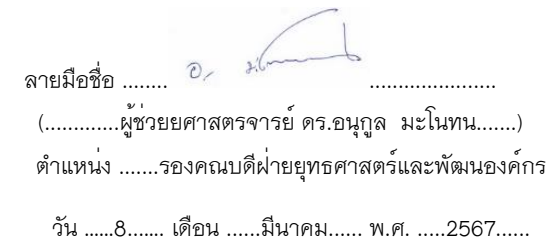 ลายมือชื่อ ........ อ. ......................
(.............ผู้ช่วยยศาสตรจารย์ ดร.อนุกูล มะโนทน.......)
ตำแหน่ง .......รองคณบดีฝ่ายยุทธศาสตร์และพัฒนองค์กร
วัน ......8....... เดือน ......มีนาคม...... พ.ศ. .....2567......